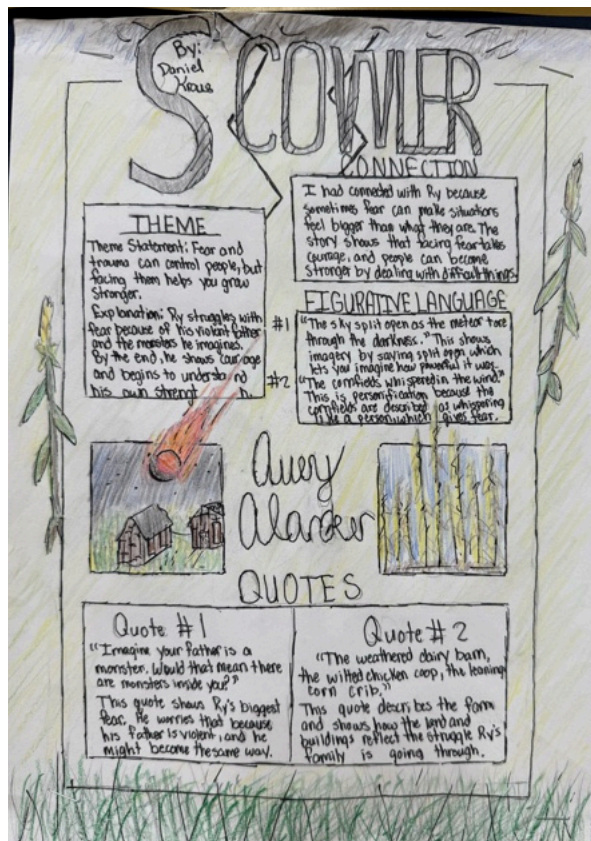 SCOWLER
By:
Daniel
Kraus
CONNECTION
I had connected with Ry because
sometimes fear can make situations
feel bigger than what they are. The
story shows that facing fear takes
courage, and people can become
stronger by dealing with difficult things.
THEME
Theme Statement: Fear and
trauma can control people, but
facing them helps you grow
stronger.
Explanation: Ry struggles with
fear because of his violent father
and the monsters he imagines.
By the end, he shows courage
and begins to understand
his own strength.
FIGURATIVE LANGUAGE
#1 "The sky split open as the meteor tore
through the darkness." This shows
imagery by saying split open which
lets you imagine how powerful it was.
#2 "The cornfields whispered in the wind."
This is personification because the
cornfields are described as whispering
like a person which gives fear.
Avery
QUOTES
Quote #1
"Imagine your father is a
monster. Would that mean there
are monsters inside you?"
This quote shows Ry's biggest
fear. He worries that because
his father is violent, and he
might become the same way.
Quote #2
"The weathered dairy barn,
the wilted chicken coop, the leaning
corn crib."
This quote describes the farm
and shows how the land and
buildings reflect the struggle Ry's
family is going through.